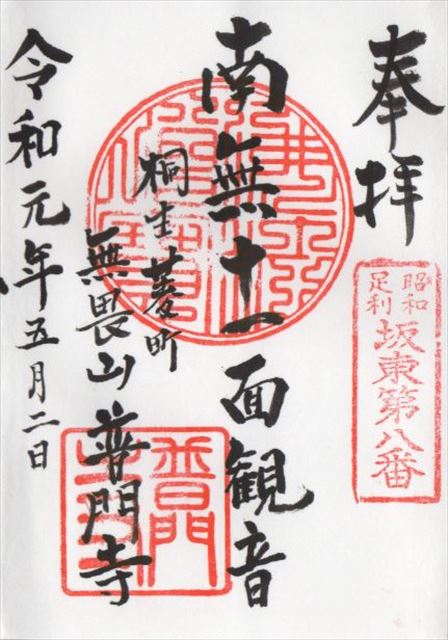 奉拝
昭和
足利
坂東第八番
南無十一面観音
桐生菱町
無畏山
普門寺
令和元年五月二日